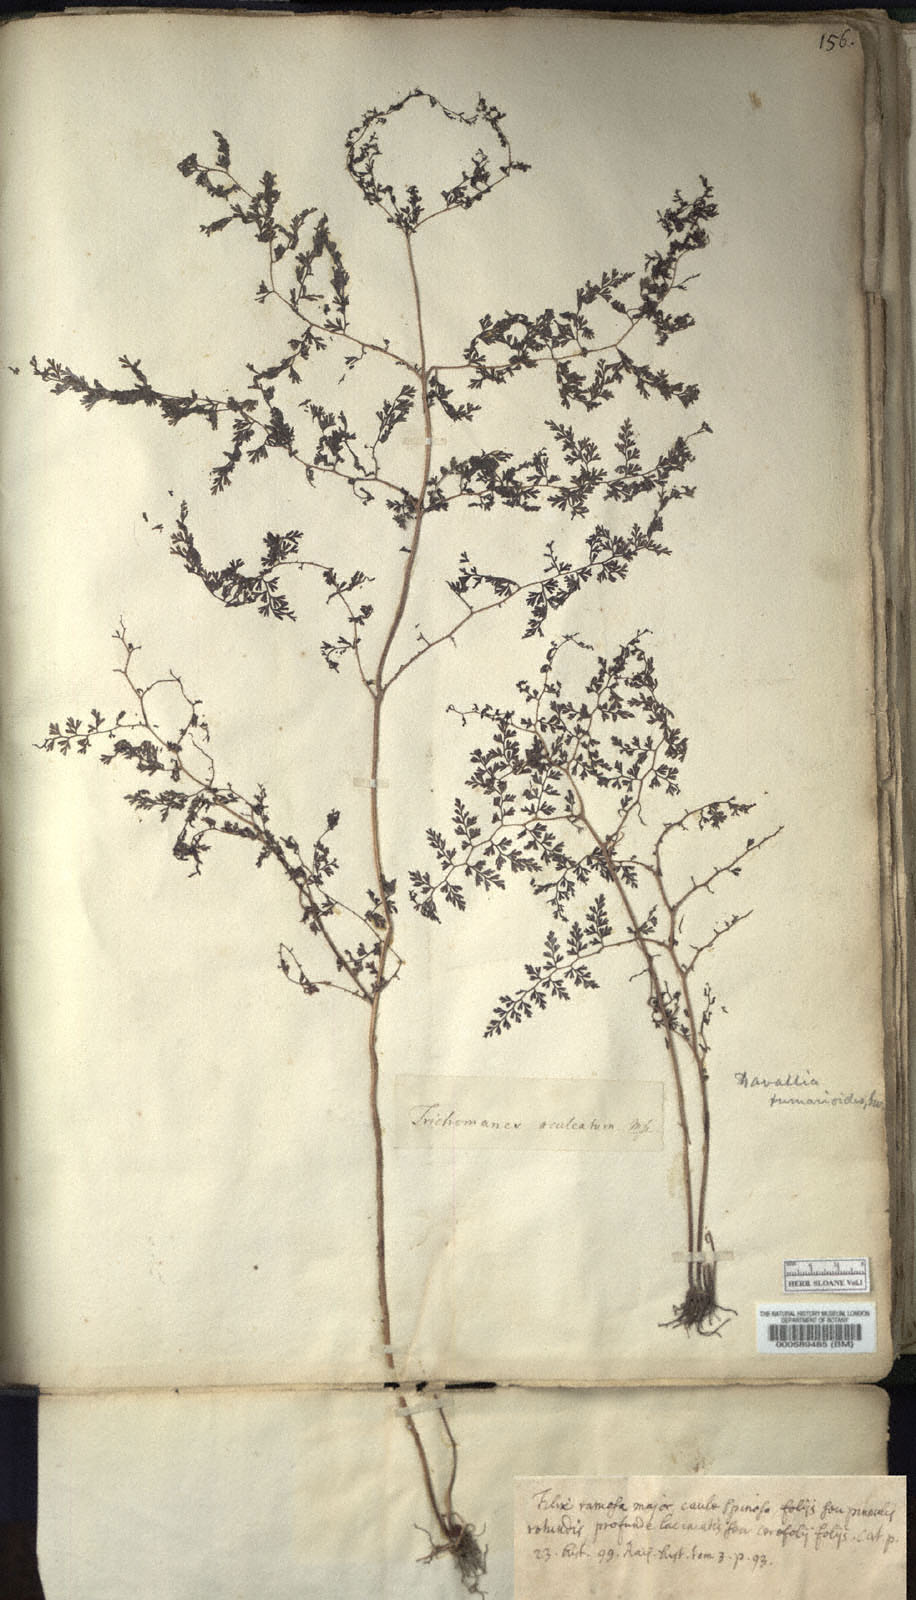 156.
Trichomanes aculeatum Ms.
Davallia
fumarioides, Sw.
HERB. SLOANE Vol.1
THE NATURAL HISTORY MUSEUM, LONDON
DEPARTMENT OF BOTANY
000589485 (BM)
Filix ramosa major, caule spinoso, folijs seu pinnulis
rotundis profunde laciniatis seu cerefolij folijs. Cat. p.
23. hist. 99. Raij. hist. tom. 3. p. 93.